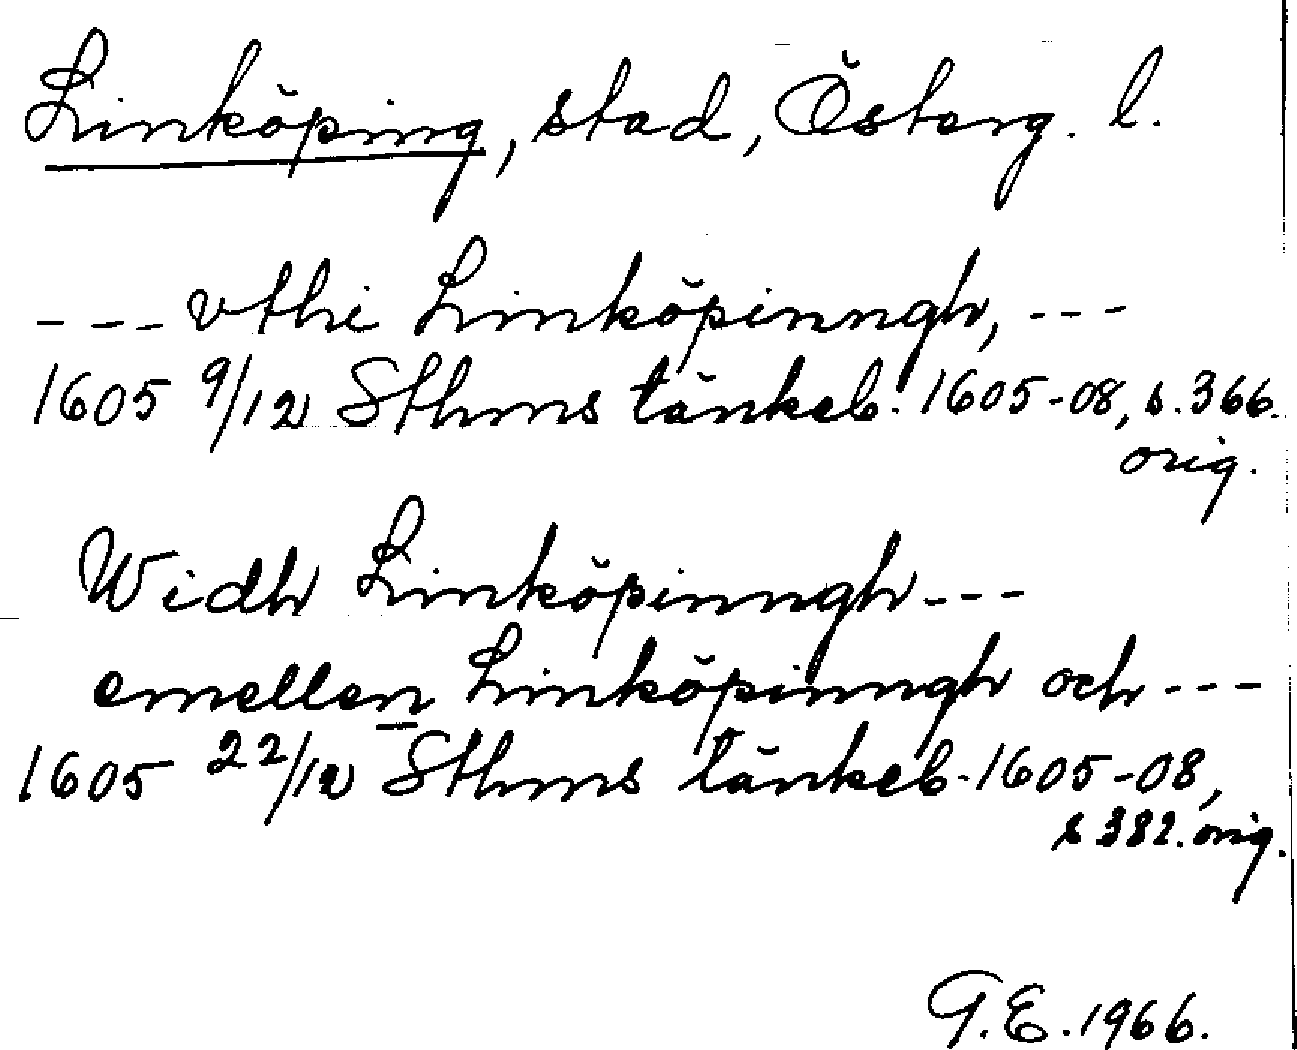 Linköping, stad, Österg. l.
--- vthi Linköpinngh, ---
1605 9/12 Sthms tänkeb. 1605-08, s. 366.
orig.
Widh Linköpinngh ---
emellen Linköpinngh och ---
1605 22/12 Sthms tänkeb. 1605-08,
s 382. orig.
G.E. 1966.